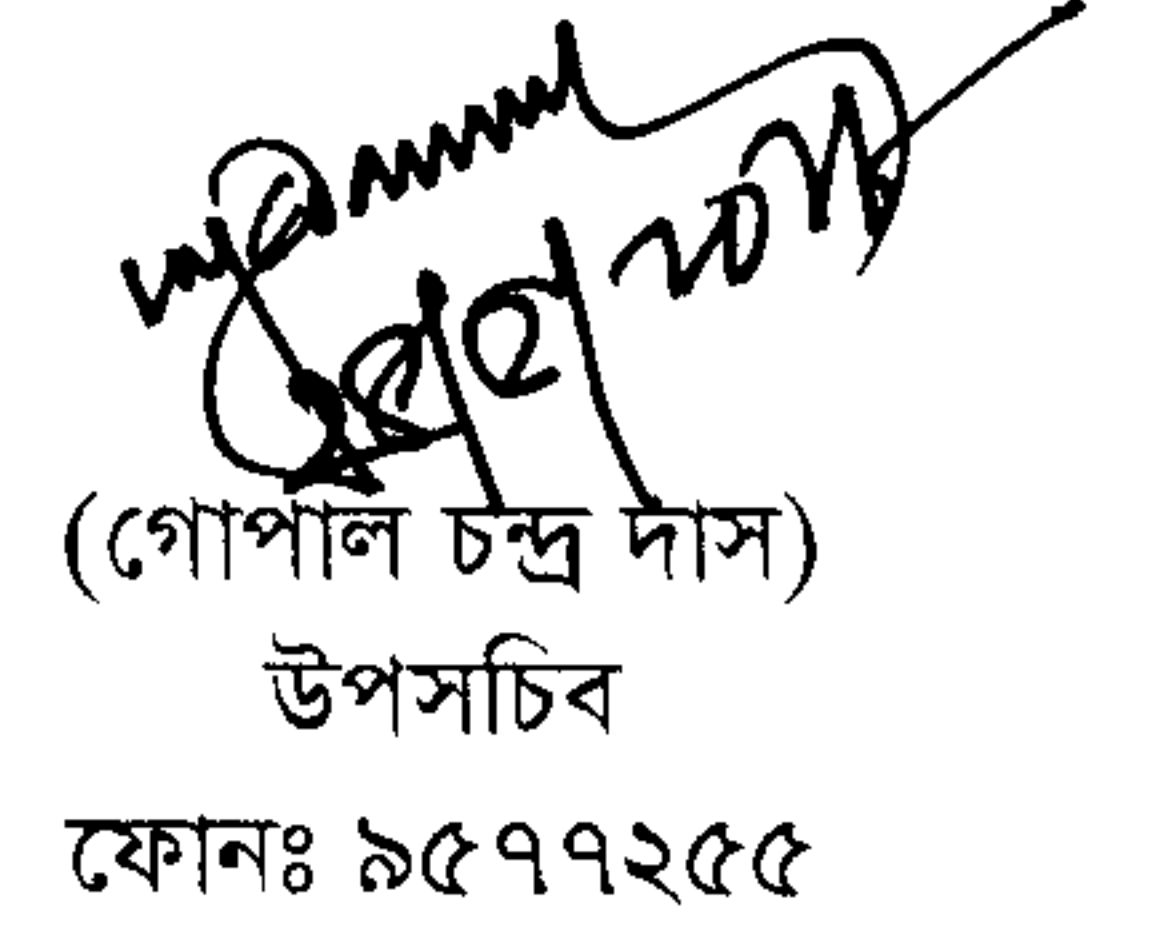 (গোপাল চন্দ্র দাস)
উপসচিব
ফোনঃ ৯৫৭৭২৫৫